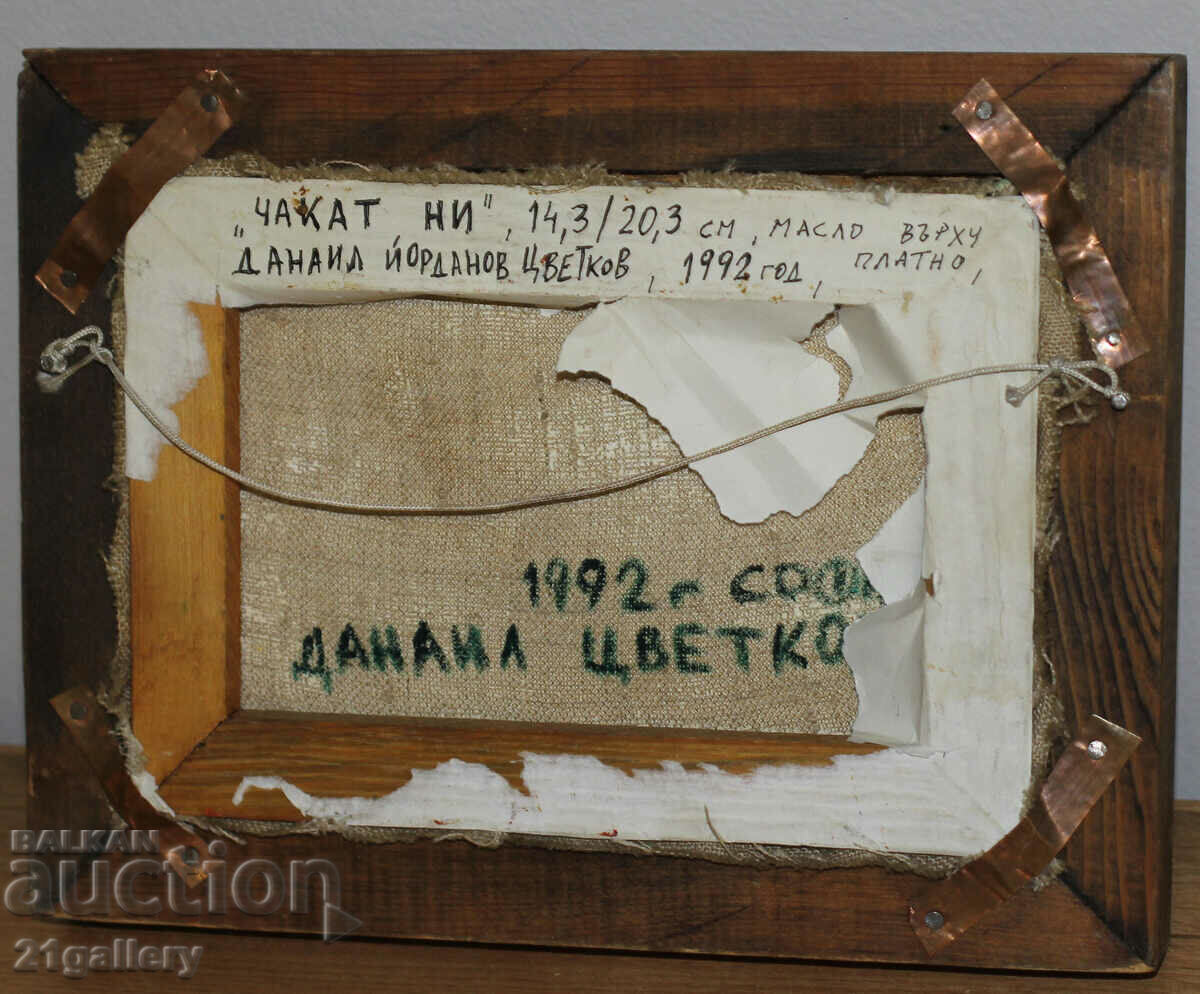 „ЧАКАТ НИ", 14,3/20,3 см, МАСЛО ВЪРХУ
ДАНАИЛ ЙОРДАНОВ ЦВЕТКОВ, 1992 год, ПЛАТНО,
1992г СОФИ
ДАНАИЛ ЦВЕТКО
BALKAN
auction
21gallery